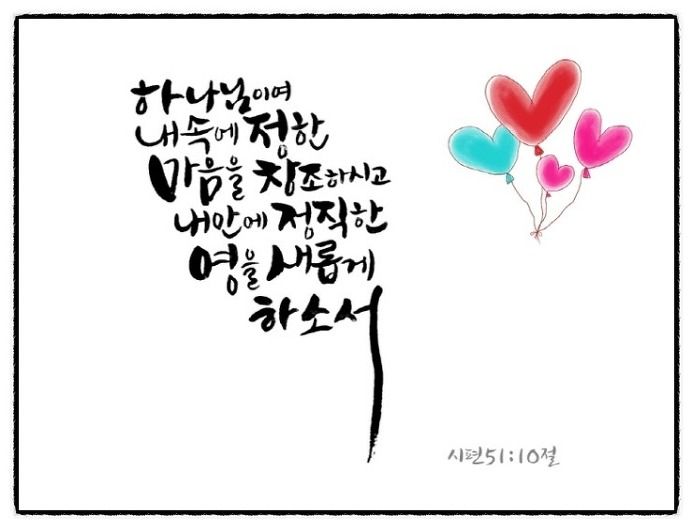 하나님이여
내속에 정한
마음을 창조하시고
내안에 정직한
영을 새롭게
하소서
시편51:10절